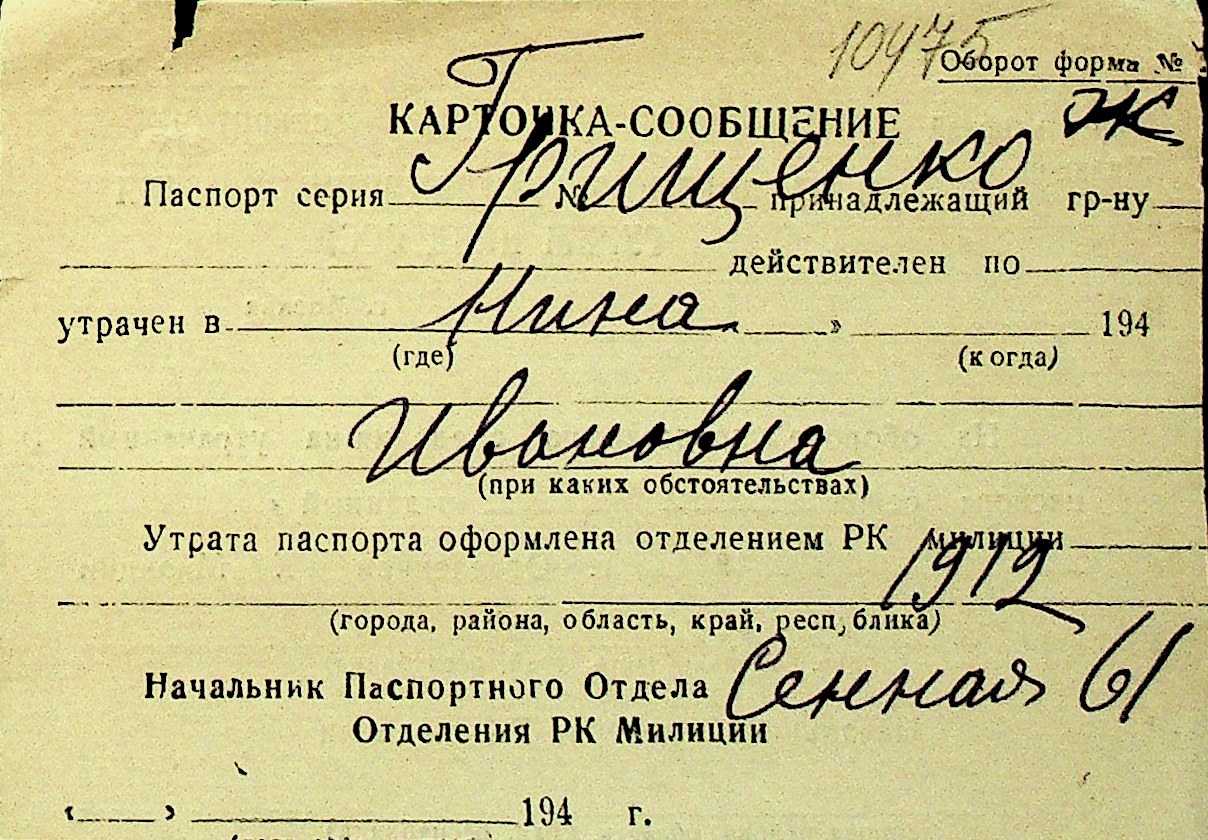 10475
Оборот форма №
Ж
КАРТОЧКА-СООБЩЕНИЕ
Грищенко
Паспорт серия № принадлежащий гр-ну
действителен по
Нина
утрачен в » 194
(где) (когда)
Ивановна
(при каких обстоятельствах)
Утрата паспорта оформлена отделением РК милиции
1912
(города, района, область, край, республика)
Сенная 61
Начальник Паспортного Отдела
Отделения РК Милиции
« » 194 г.